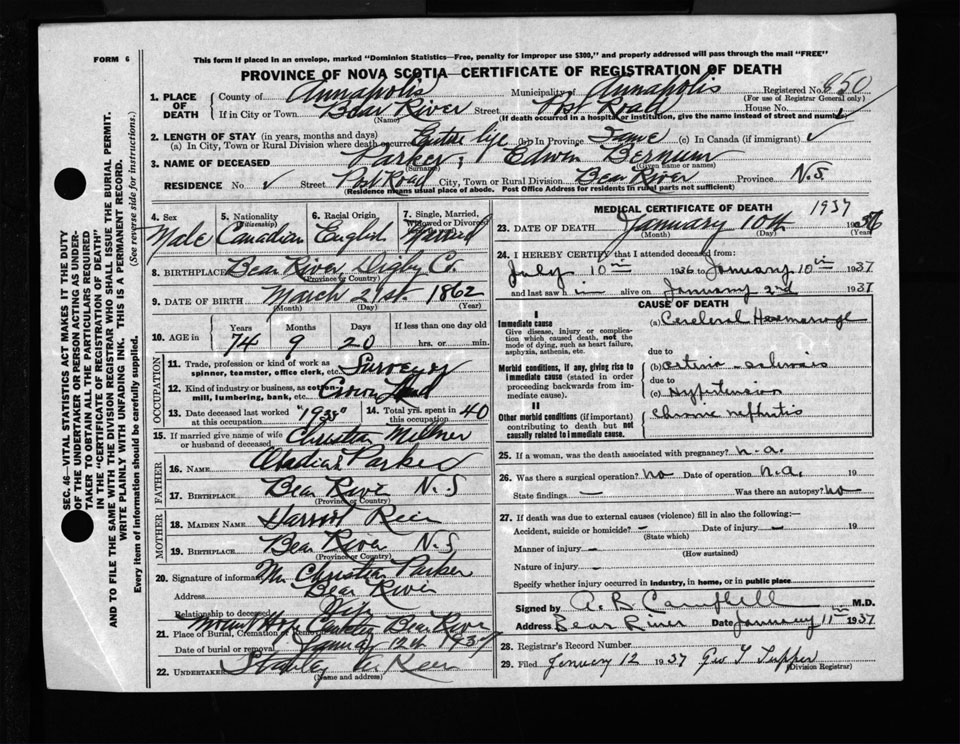 FORM 6
This form if placed in an envelope, marked "Dominion Statistics—Free, penalty for improper use $300," and properly addressed will pass through the mail "FREE"
PROVINCE OF NOVA SCOTIA—CERTIFICATE OF REGISTRATION OF DEATH
1. PLACE OF DEATH
County of Annapolis Municipality of Annapolis Registered No. 650
(For use of Registrar General only)
If in City or Town. Bear River Street Post Road House No. ✓
(Name) (If death occurred in a hospital or institution, give the name instead of street and number)
2. LENGTH OF STAY (in years, months and days)
(a) In City, Town or Rural Division where death occurred Entire life (b) in Province Same (c) In Canada (if immigrant) ✓
3. NAME OF DECEASED Parker, Edwin Bernum
(Surname) (Given name or names)
RESIDENCE No ✓ Street Post Road City, Town or Rural Division Bear River Province N.S
(Residence means usual place of abode. Post Office Address for residents in rural parts not sufficient)
4. Sex Male
5. Nationality (Citizenship) Canadian
6. Racial Origin English
7. Single, Married, Widowed or Divorced Married
8. BIRTHPLACE Bear River, Digby Co.
(Province or Country)
9. DATE OF BIRTH March 21st. 1862
(Month) (Day) (Year)
10. AGE Years 74 Months 9 Days 20 If less than one day old hrs. or min.
OCCUPATION
11. Trade, profession or kind of work as spinner, teamster, office clerk, etc. Surveyor
12. Kind of industry or business, as cotton-mill, lumbering, bank, etc. Crown Land
13. Date deceased last worked at this occupation "1935"
14. Total yrs. spent in this occupation 40
15. If married give name of wife or husband of deceased Christian Millner
FATHER
16. NAME Obadiah Parker
17. BIRTHPLACE Bear River N.S
(Province or Country)
MOTHER
18. MAIDEN NAME Harriot
19. BIRTHPLACE Bear River N.S
(Province or Country)
20. Signature of informant Mrs Christian Parker
Address Bear River
Relationship to deceased Wife
21. Place of Burial, Cremation or Removal Mount Hope Cemetery Bear River
Date of burial or removal January 12th 1937
22. UNDERTAKER Stanley
(Name and address)
MEDICAL CERTIFICATE OF DEATH
1937
23. DATE OF DEATH January 10th 1936
(Month) (Day) (Year)
24. I HEREBY CERTIFY that I attended deceased from:
July 10th 1936 to January 10th 1937
and last saw h im alive on January 2nd 1937
CAUSE OF DEATH
I
Immediate cause
Give disease, injury or complication which caused death, not the mode of dying, such as heart failure, asphyxia, asthenia, etc.
(a) Cerebral Hemorrage
due to
Morbid conditions, if any, giving rise to immediate cause (stated in order proceeding backwards from immediate cause).
(b) Arterio-sclerosis
due to
(c) Hypertension
II
Other morbid conditions (if important) contributing to death but not causally related to immediate cause.
Chronic nephritis
25. If a woman, was the death associated with pregnancy? n.a.
26. Was there a surgical operation? no Date of operation n.a. 19
State findings — Was there an autopsy? no
27. If death was due to external causes (violence) fill in also the following:—
Accident, suicide or homicide? — Date of injury — 19
(State which)
Manner of injury —
(How sustained)
Nature of injury —
Specify whether injury occurred in industry, in home, or in public place
Signed by A. B Campbell M.D.
Address Bear River Date January 11th 1937
28. Registrar's Record Number
29. Filed January 12 1937 Geo T Tupper
(Division Registrar)
SEC. 46—VITAL STATISTICS ACT MAKES IT THE DUTY
OF THE UNDERTAKER OR PERSON ACTING AS UNDER-
TAKER TO OBTAIN ALL THE PARTICULARS REQUIRED
IN THE "CERTIFICATE OF REGISTRATION OF DEATH"
AND TO FILE THE SAME WITH THE DIVISION REGISTRAR WHO SHALL ISSUE THE BURIAL PERMIT.
WRITE PLAINLY WITH UNFADING INK. THIS IS A PERMANENT RECORD.
Every item of information should be carefully supplied. (See reverse side for instructions.)